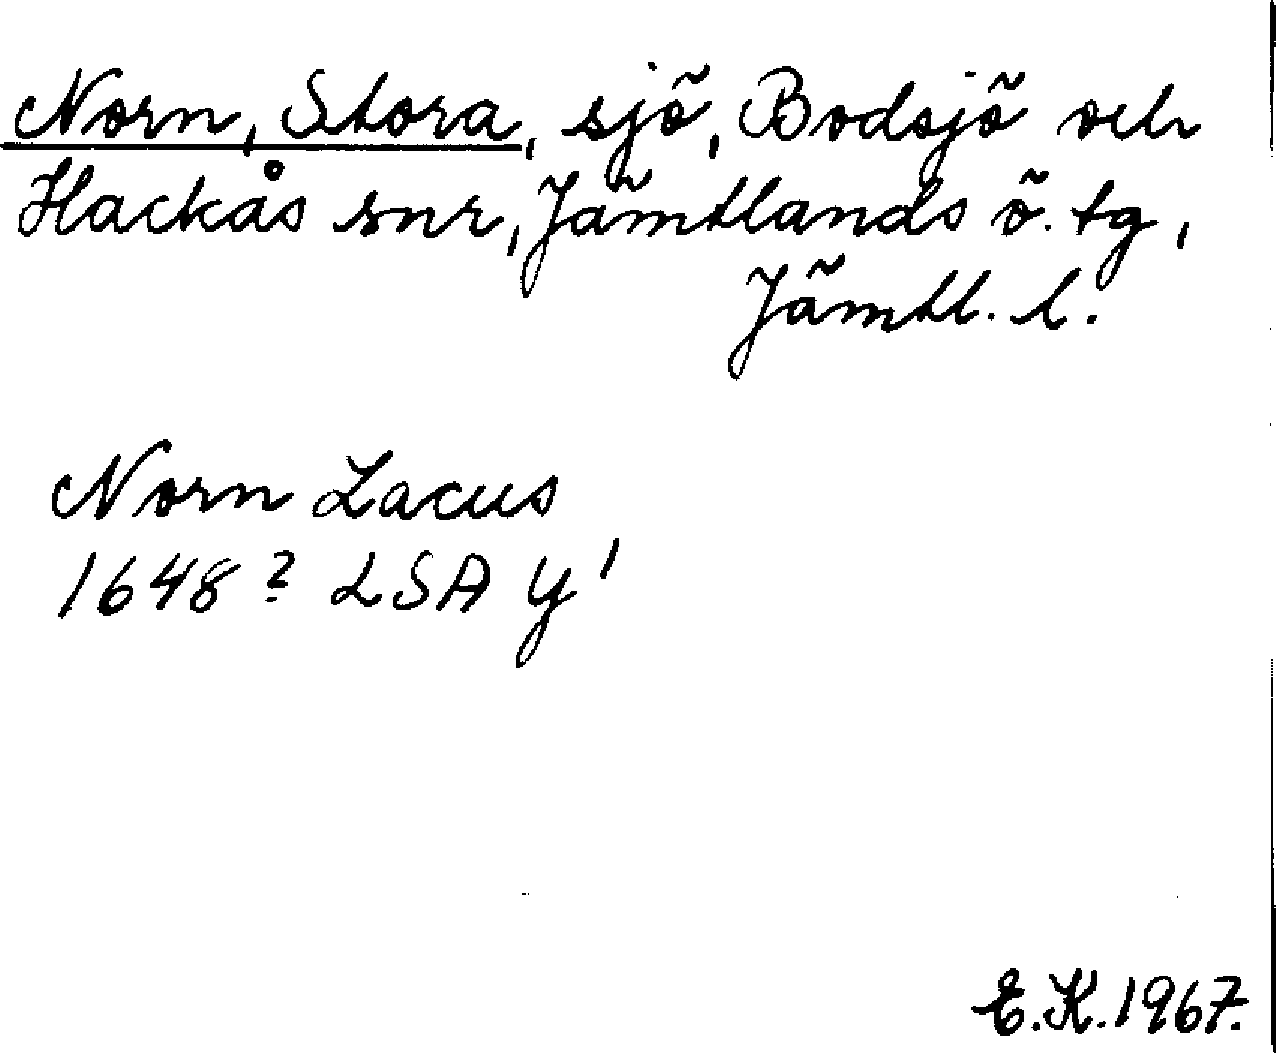 Norn, Stora, sjö, Bodsjö och
Hackås snr, Jämtlands ö. tg,
Jämtl. l.
Norn Lacus
1648? LSA Y'
E.K. 1967.